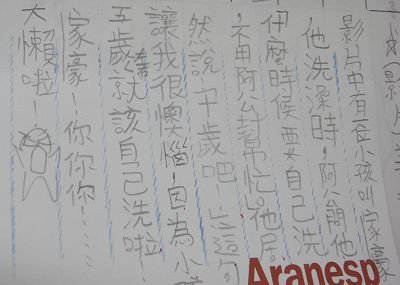 影片中有一個小孩叫家豪
他洗澡時，阿公問他
什麼時候要自己洗
不用阿公幫忙他居
然說歲吧！這句
讓我很懊惱！因為小
五歲就該自己洗啦！
家豪！你你你……
大懶啦！
Aranesp